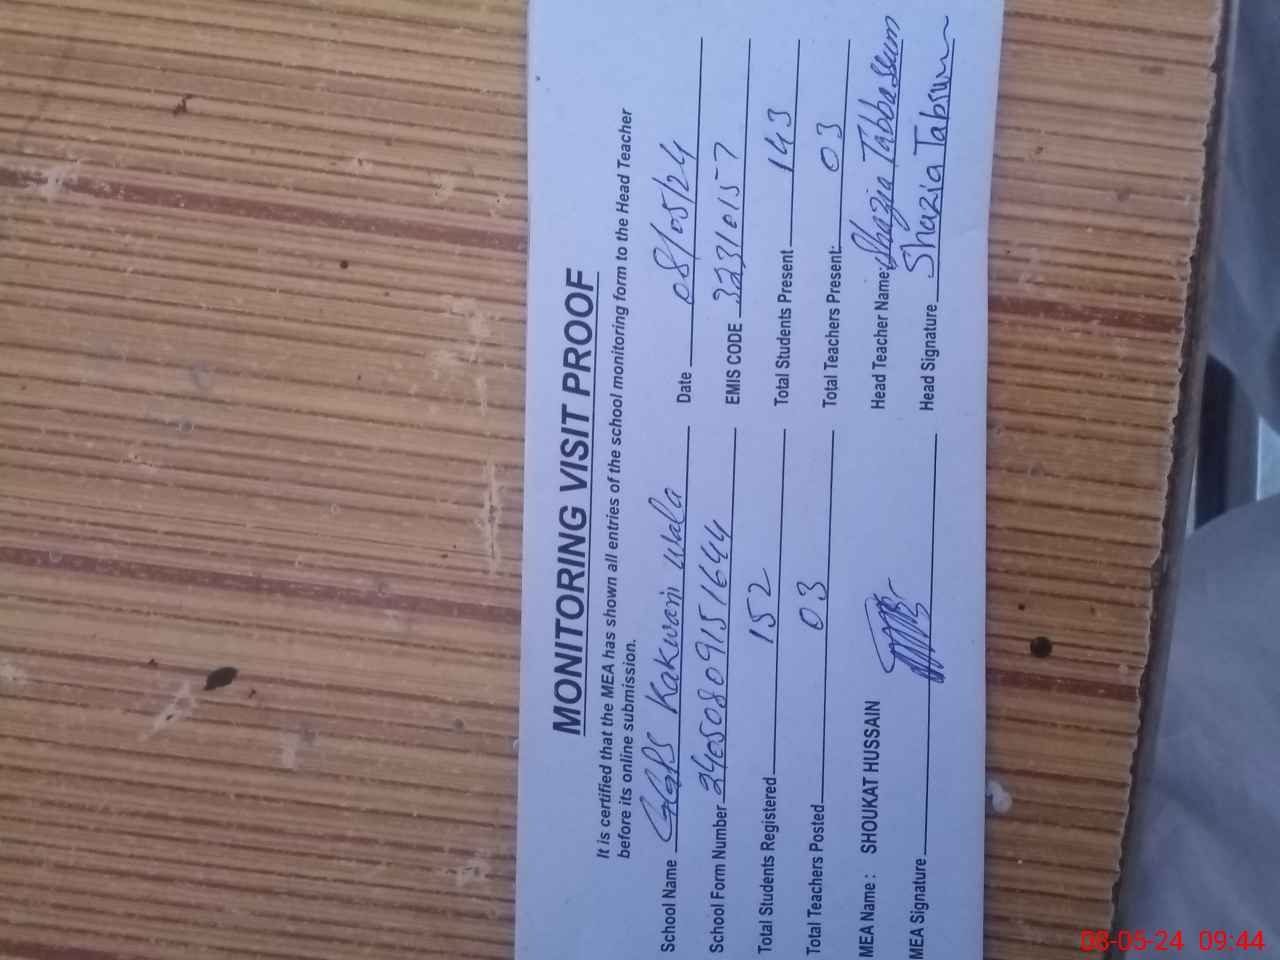 MONITORING VISIT PROOF
It is certified that the MEA has shown all entries of the school monitoring form to the Head Teacher
before its online submission.
School Name GGPS Kakwari Wala Date 08/05/24
School Form Number 240508091551644 EMIS CODE 32310157
Total Students Registered 152 Total Students Present 143
Total Teachers Posted 03 Total Teachers Present: 03
MEA Name : SHOUKAT HUSSAIN Head Teacher Name: Shazia Tabbassum
MEA Signature Head Signature Shazia Tabsum
08-05-24 09:44